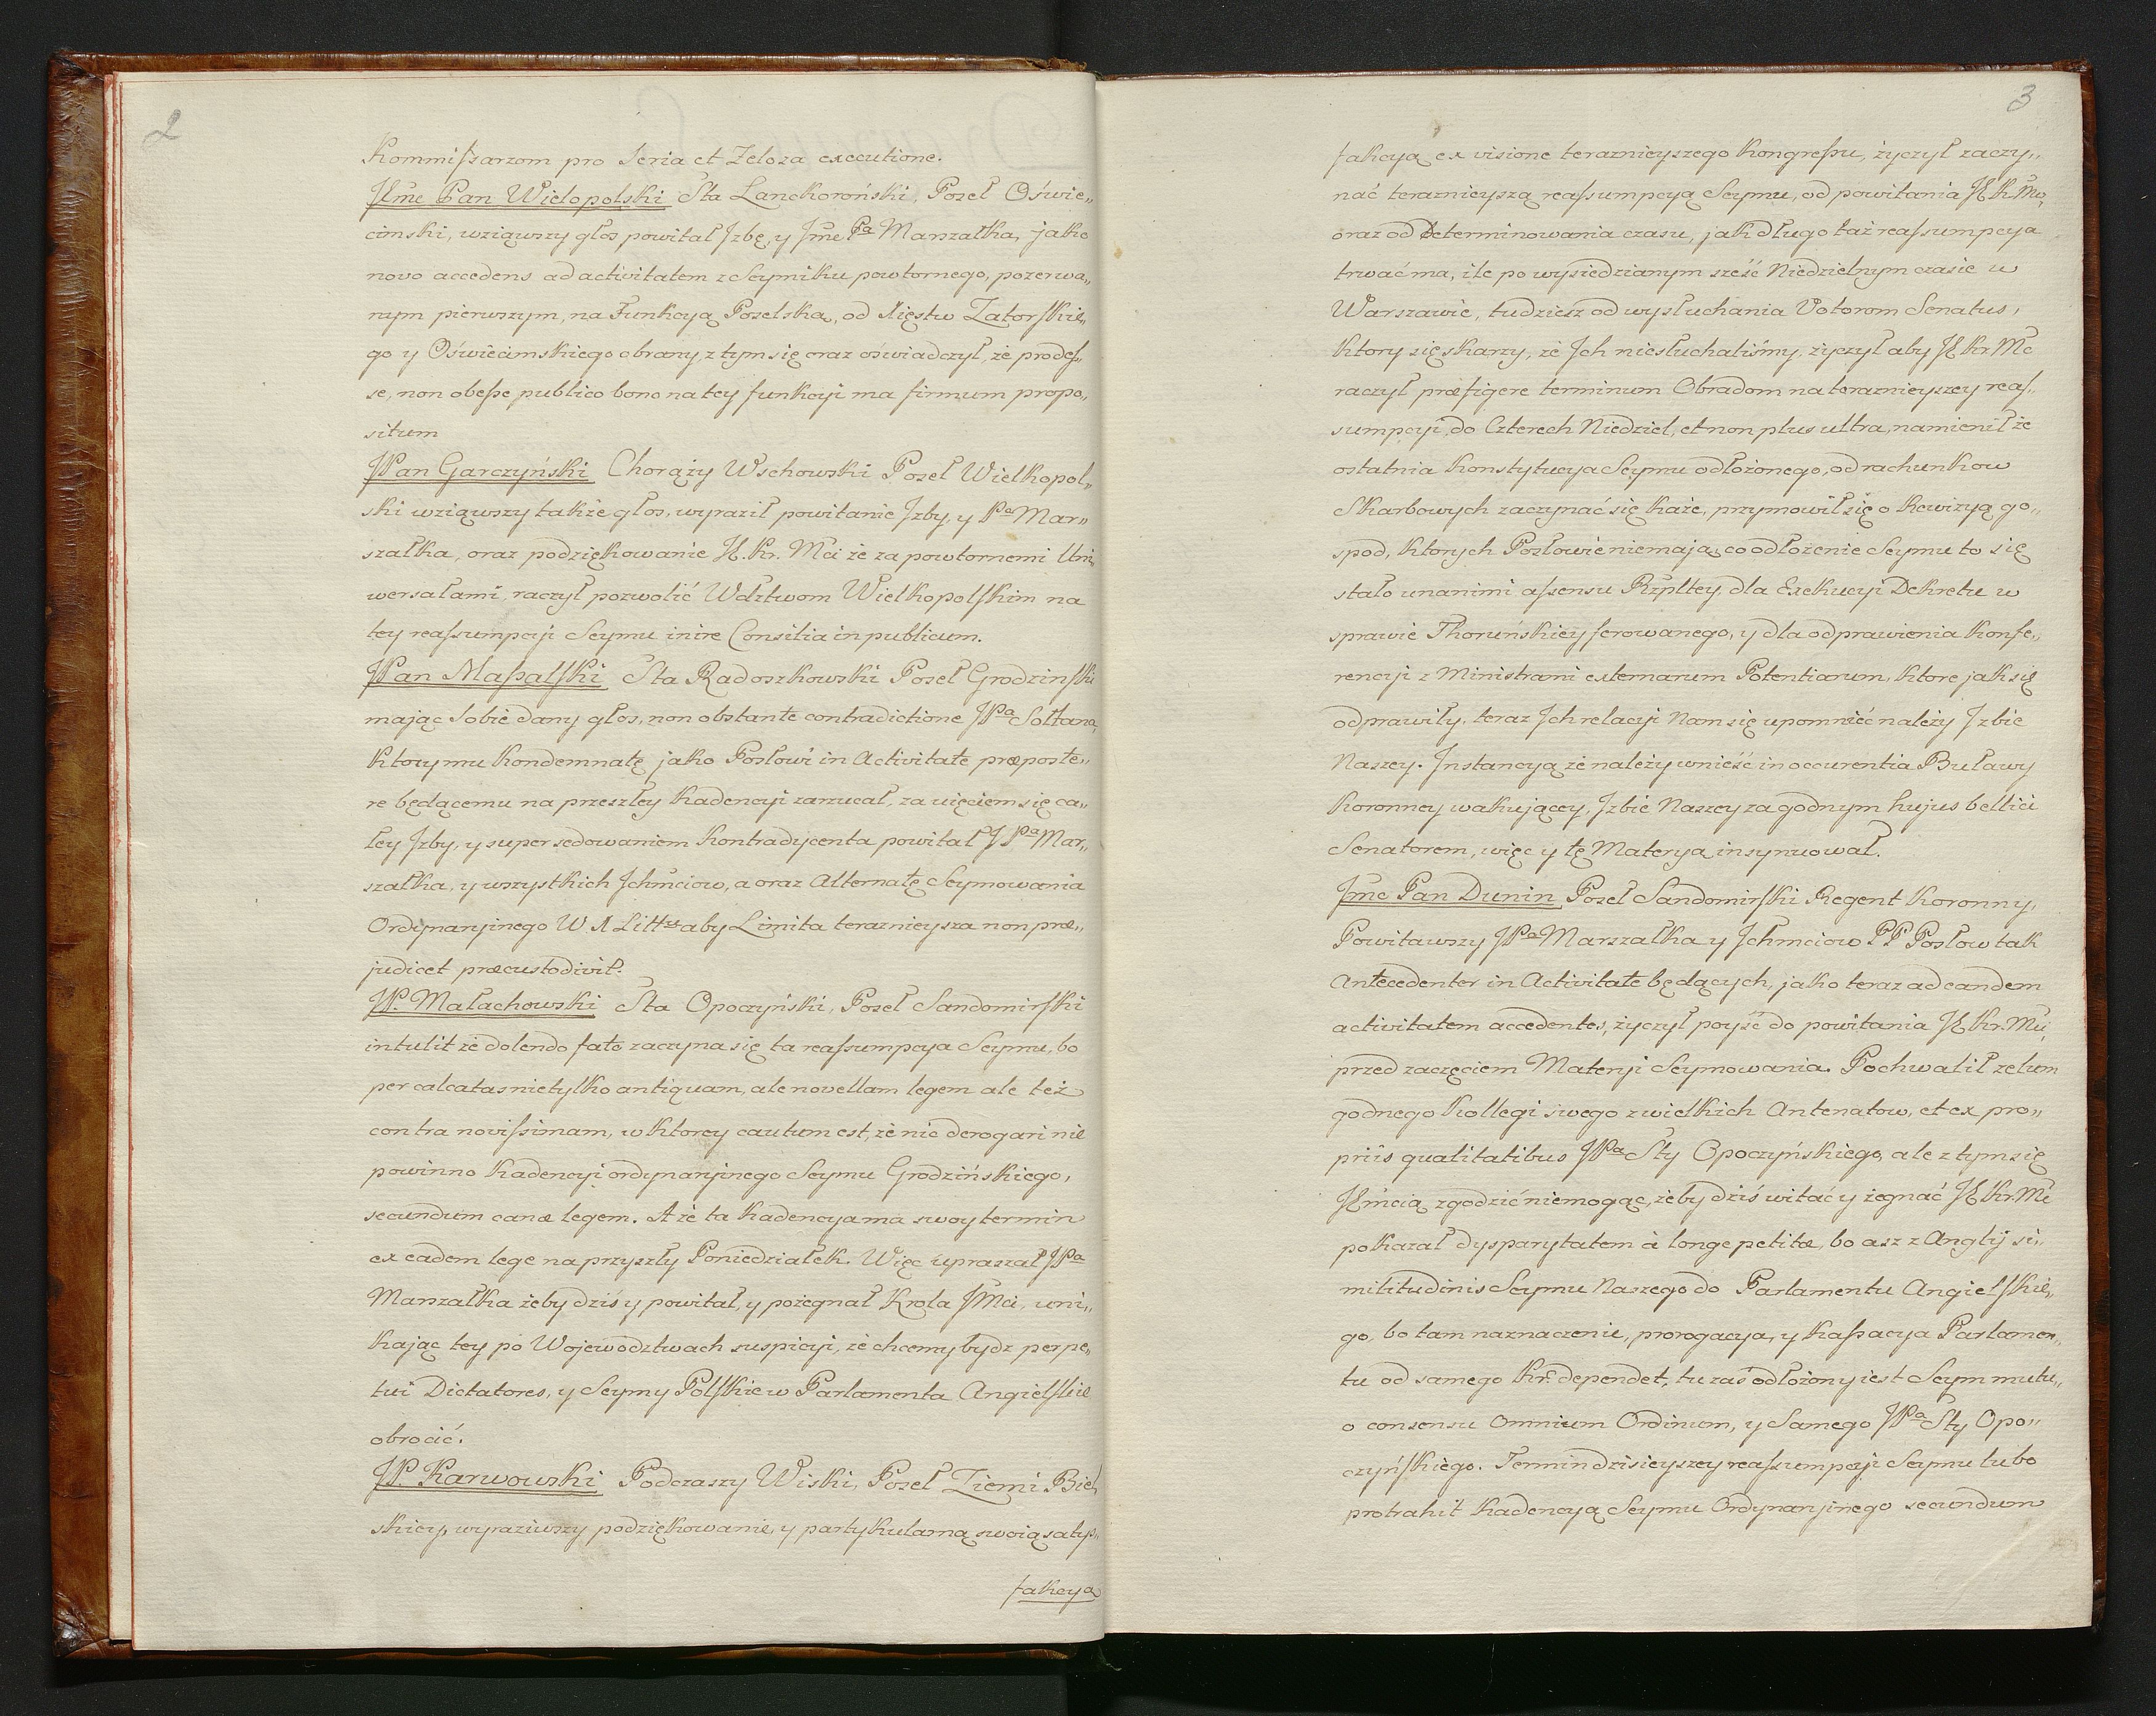 2
Kommissarzom pro seria et Zeloza executione.
JEmć Pan Wielopolski Sta Lanckoroński, Poseł Oświe„
cimski, wziąwszy głos powitał Jzbę, y Jmć Pa Marszałka, jako
novo accedens ad activitatem z Seymiku powtornego, po zerwa„
nym pierwszym, na Funkcyą Poselską, od Xięstw Zatorskie„
go y Oświecimskiego obrany, z tym się oraz oświadczył, że prodes„
se, non obesse publico bono na tey funkcyi ma firmum propo„
situm
JPan Garczyński Chorąży Wschowski Poseł Wielkopol„
ski wziąwszy także głos, wyraził powitanie Jzby, y Pa Mar„
szałka, oraz podziękowanie J.Kr. Mci że za powtornemi Uni„
wersałami, raczył pozwolić Wdztwom Wielkopolskim na
tey reassumpcyi Seymu inire Consilia in publicum.
JPan Massalski Sta Radoszkowski Poseł Grodzinski
mając sobie dany głos, non obstante contradictione JPa Sołtana,
ktory mu Kondemnatę jako Posłowi in Activitate præposte„
re będącemu na przeszłey Kadencyi zarzucał, za więciem się ca„
łey Jzby, y supersedowaniem Kontradycenta powitał JPa Mar„
szałka, y wszystkich Jchmciow, a oraz Alternatę Seymowania
Ordynaryjnego W X Litt. aby Limita teraznieysza non præ„
judicet præcustodivit.
JP. Małachowski Sta Opoczyński, Poseł Sandomirski
intulit że dolendo fato zaczyna się ta reassumpcya Seymu, bo
per calcatas nietylko antiquam, ale novellam legem ale też
contra novissimam, w ktorey cautum est, że nic derogari nie
powinno Kadencyi ordynaryjnego Seymu Grodzińskiego,
secundum canæ legem. A że ta Kadencya ma swoy termin
ex eadem lege na przyszły Poniedziałek. Więc upraszał JPa
Marszałka żeby dziś y powitał, y pożegnał Krola JMci, uni„
kając tey po Wojewodztwach suspicyi, że chcemy bydz perpe„
tui Dictatores, y Seymy Polskie w Parlamenta Angielskie
obrocić.
JP. Karwowski Podczaszy Wiski, Poseł Ziemi Biel„
skiey, wyraziwszy podziękowanie, y partykularną swoią satys„
fakcyą
3
fakcyą ex visione teraznieyszego Kongressu, życzył zaczy„
nać teraznieyszą reassumpcyą Seymu, od powitania JKMci,
oraz od Determinowania czasu, jak długo taż reassumpcya
trwać ma, ile po wysiedzianym sześć Niedzielnym czasie w
Warszawie, tudziesz od wysłuchania Votorom Senatus,
ktory się skarzy, że Jch niesłuchaliśmy, życzył aby J Kr. Mć
raczył præfigere terminum Obradom na teraznieyszey reas„
sumpcyi, do Czterech Niedziel, et non plus ultra, namienił że
ostatnia Konstytucya Seymu odłożonego, od rachunkow
Skarbowych zaczynać się każe, przymowił się o Rewizyą go„
spod, ktorych Posłowie niemają, co odłożenie Seymu to się
stało unanimi assensu Rzpltey, dla Exekucyi Dekretu w
sprawie Thoruńskiey ferowanego, y dla odprawienia Konfe„
rencyi z Ministrami externarum Potentiarum, ktore jak się
odprawiły, teraz Jch relacyi Nam się upomnieć należy Jzbie
Naszey. Jnstancyą że należy wnieść in occurentia Buławy
Koronney wakującey, Jzbie Naszey za godnym hujus bellici
Senatorem, więc y tę Materyą insynuował.
Jmć Pan Dunin, Poseł Sandomirski Regent Koronny,
Powitawszy JPa Marszałka y Jchmciow PP Posłow tak
Antecedenter in Activitate będących, jako teraz ad eandem
activitatem accedentes, życzył poyść do powitania J Kr. Mci,
przed zaczęciem Materyi Seymowania. Pochwalił zelum
godnego Kollegi swego z wielkich Antenatow, et ex pro„
priis qualitatibus JPa Sty Opoczyńskiego, ale z tym się
JEmcią zgodzić niemogąc, żeby dziś witać y żegnać J Kr. Mć
pokazał dysparytatem à longe petitæ, bo asz z Anglij si„
militudinis Seymu Naszego do Parlamentu Angielskie„
go, bo tam naznaczenie, prorogacya, y Kassacya Parlamen„
tu od samego Kr. dependet, tu zaś odłożony iest Seym mutu„
o consensu Omnium Ordinum, y Samego JPa Sty Opo„
czyńskiego. Termin dzisieyszey reassumpcyi Seymu lubo
protrahit Kadencyą Seymu Ordynaryjnego secundum